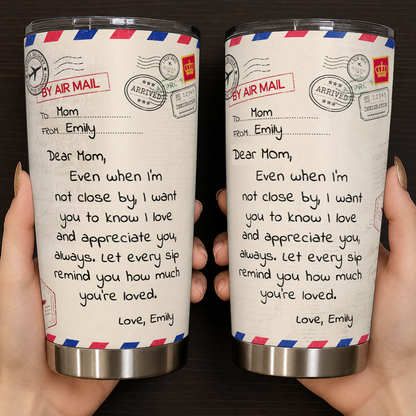 BY AIR MAIL
ARRIVED
TO Mom
FROM Emily
Dear Mom,
Even when I'm
not close by, I want
you to know I love
and appreciate you,
always. Let every sip
remind you how much
you're loved.
Love, Emily
BY AIR MAIL
ARRIVED
TO Mom
FROM Emily
Dear Mom,
Even when I'm
not close by, I want
you to know I love
and appreciate you,
always. Let every sip
remind you how much
you're loved.
Love, Emily